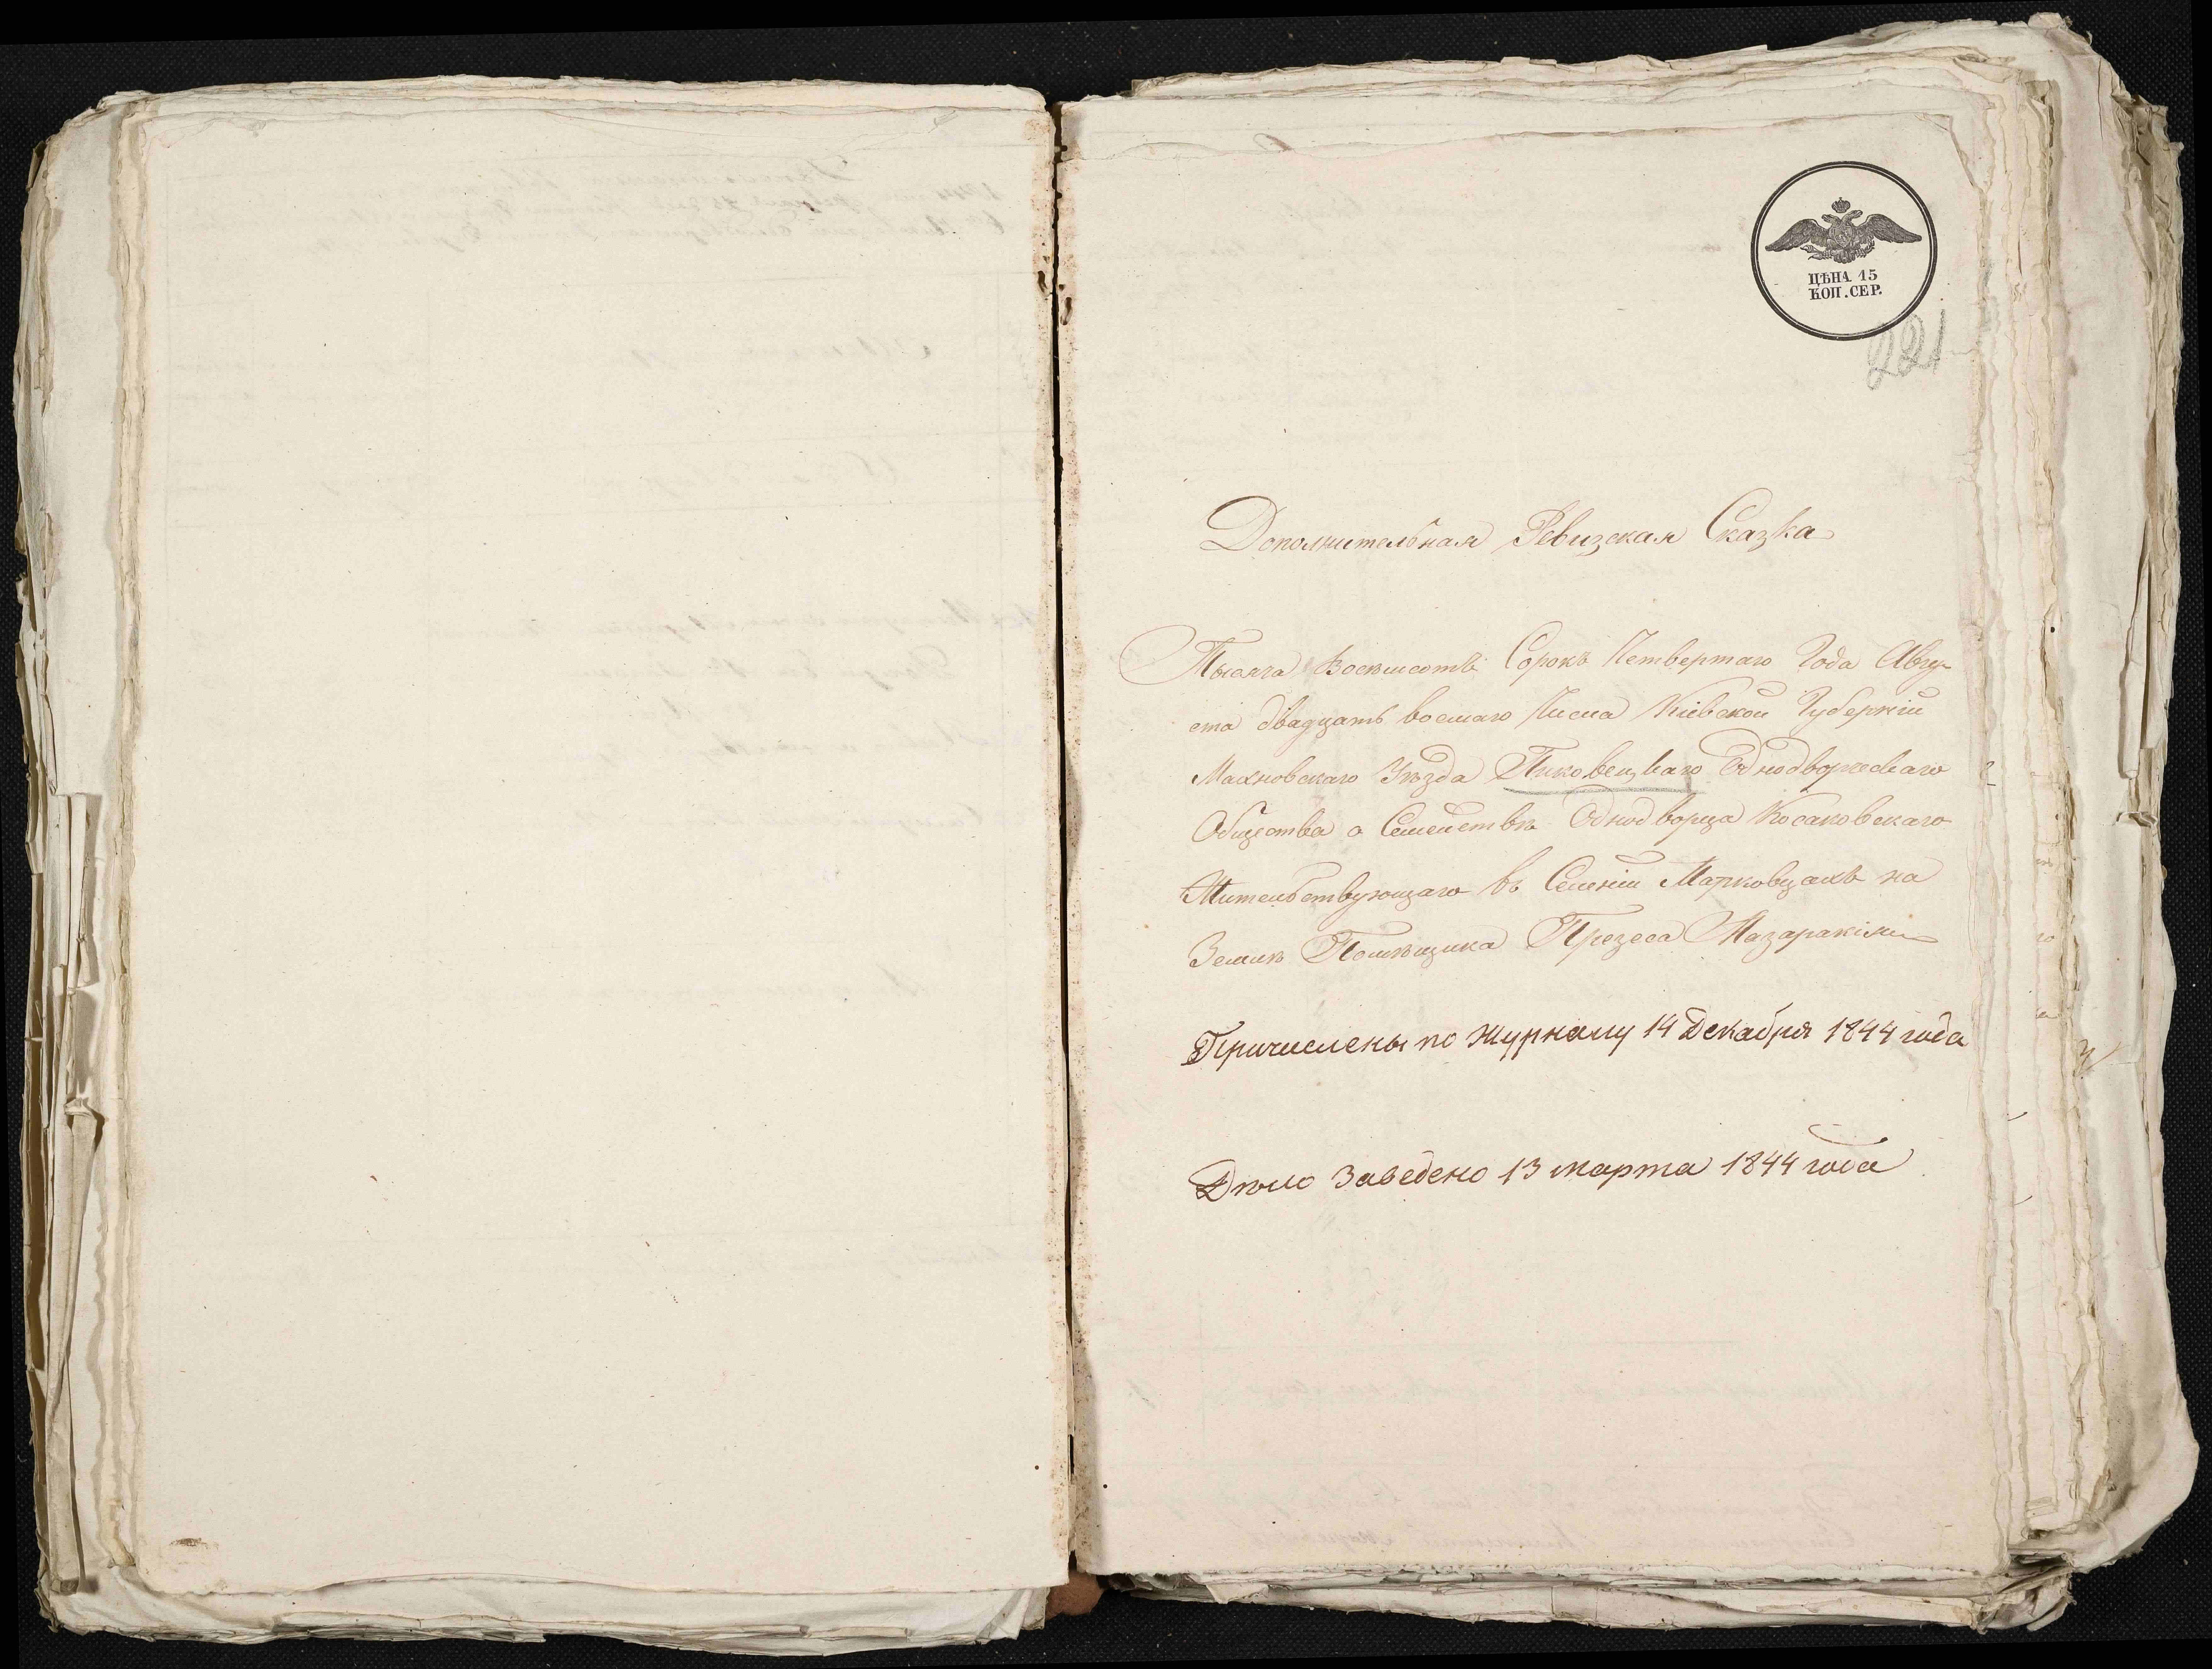 ЦѢНА 15
КОП. СЕР.
221
Дополнительная Ревизская Сказка
Тысяча Восемсотъ Сорокъ Четвертаго Года Авгу-
ста двадцать восмаго Числа Кіевской Губерніи
Махновскаго Уѣзда Пиковецкаго Однодворческаго
Общества о Семействѣ Однодворца Косаковскаго
Жительствующаго въ Селеніи Марковцахъ на
Землѣ Помѣщика Презеса Мазаракіи
Причислены по Журналу 14 Декабря 1844 года
Дѣло Заведено 13 марта 1844 года